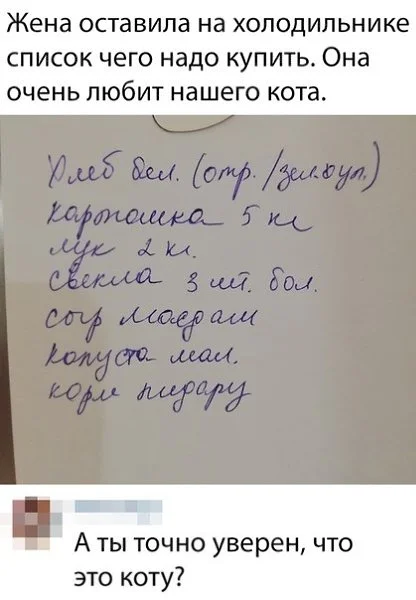 Жена оставила на холодильнике
список чего надо купить. Она
очень любит нашего кота.
Хлеб бел. (отр. /зел.
картошка 5 кг
лук 2 кг.
свекла 3 шт. бол.
сыр маасдам
капуста мал.
корм пидару
А ты точно уверен, что
это коту?